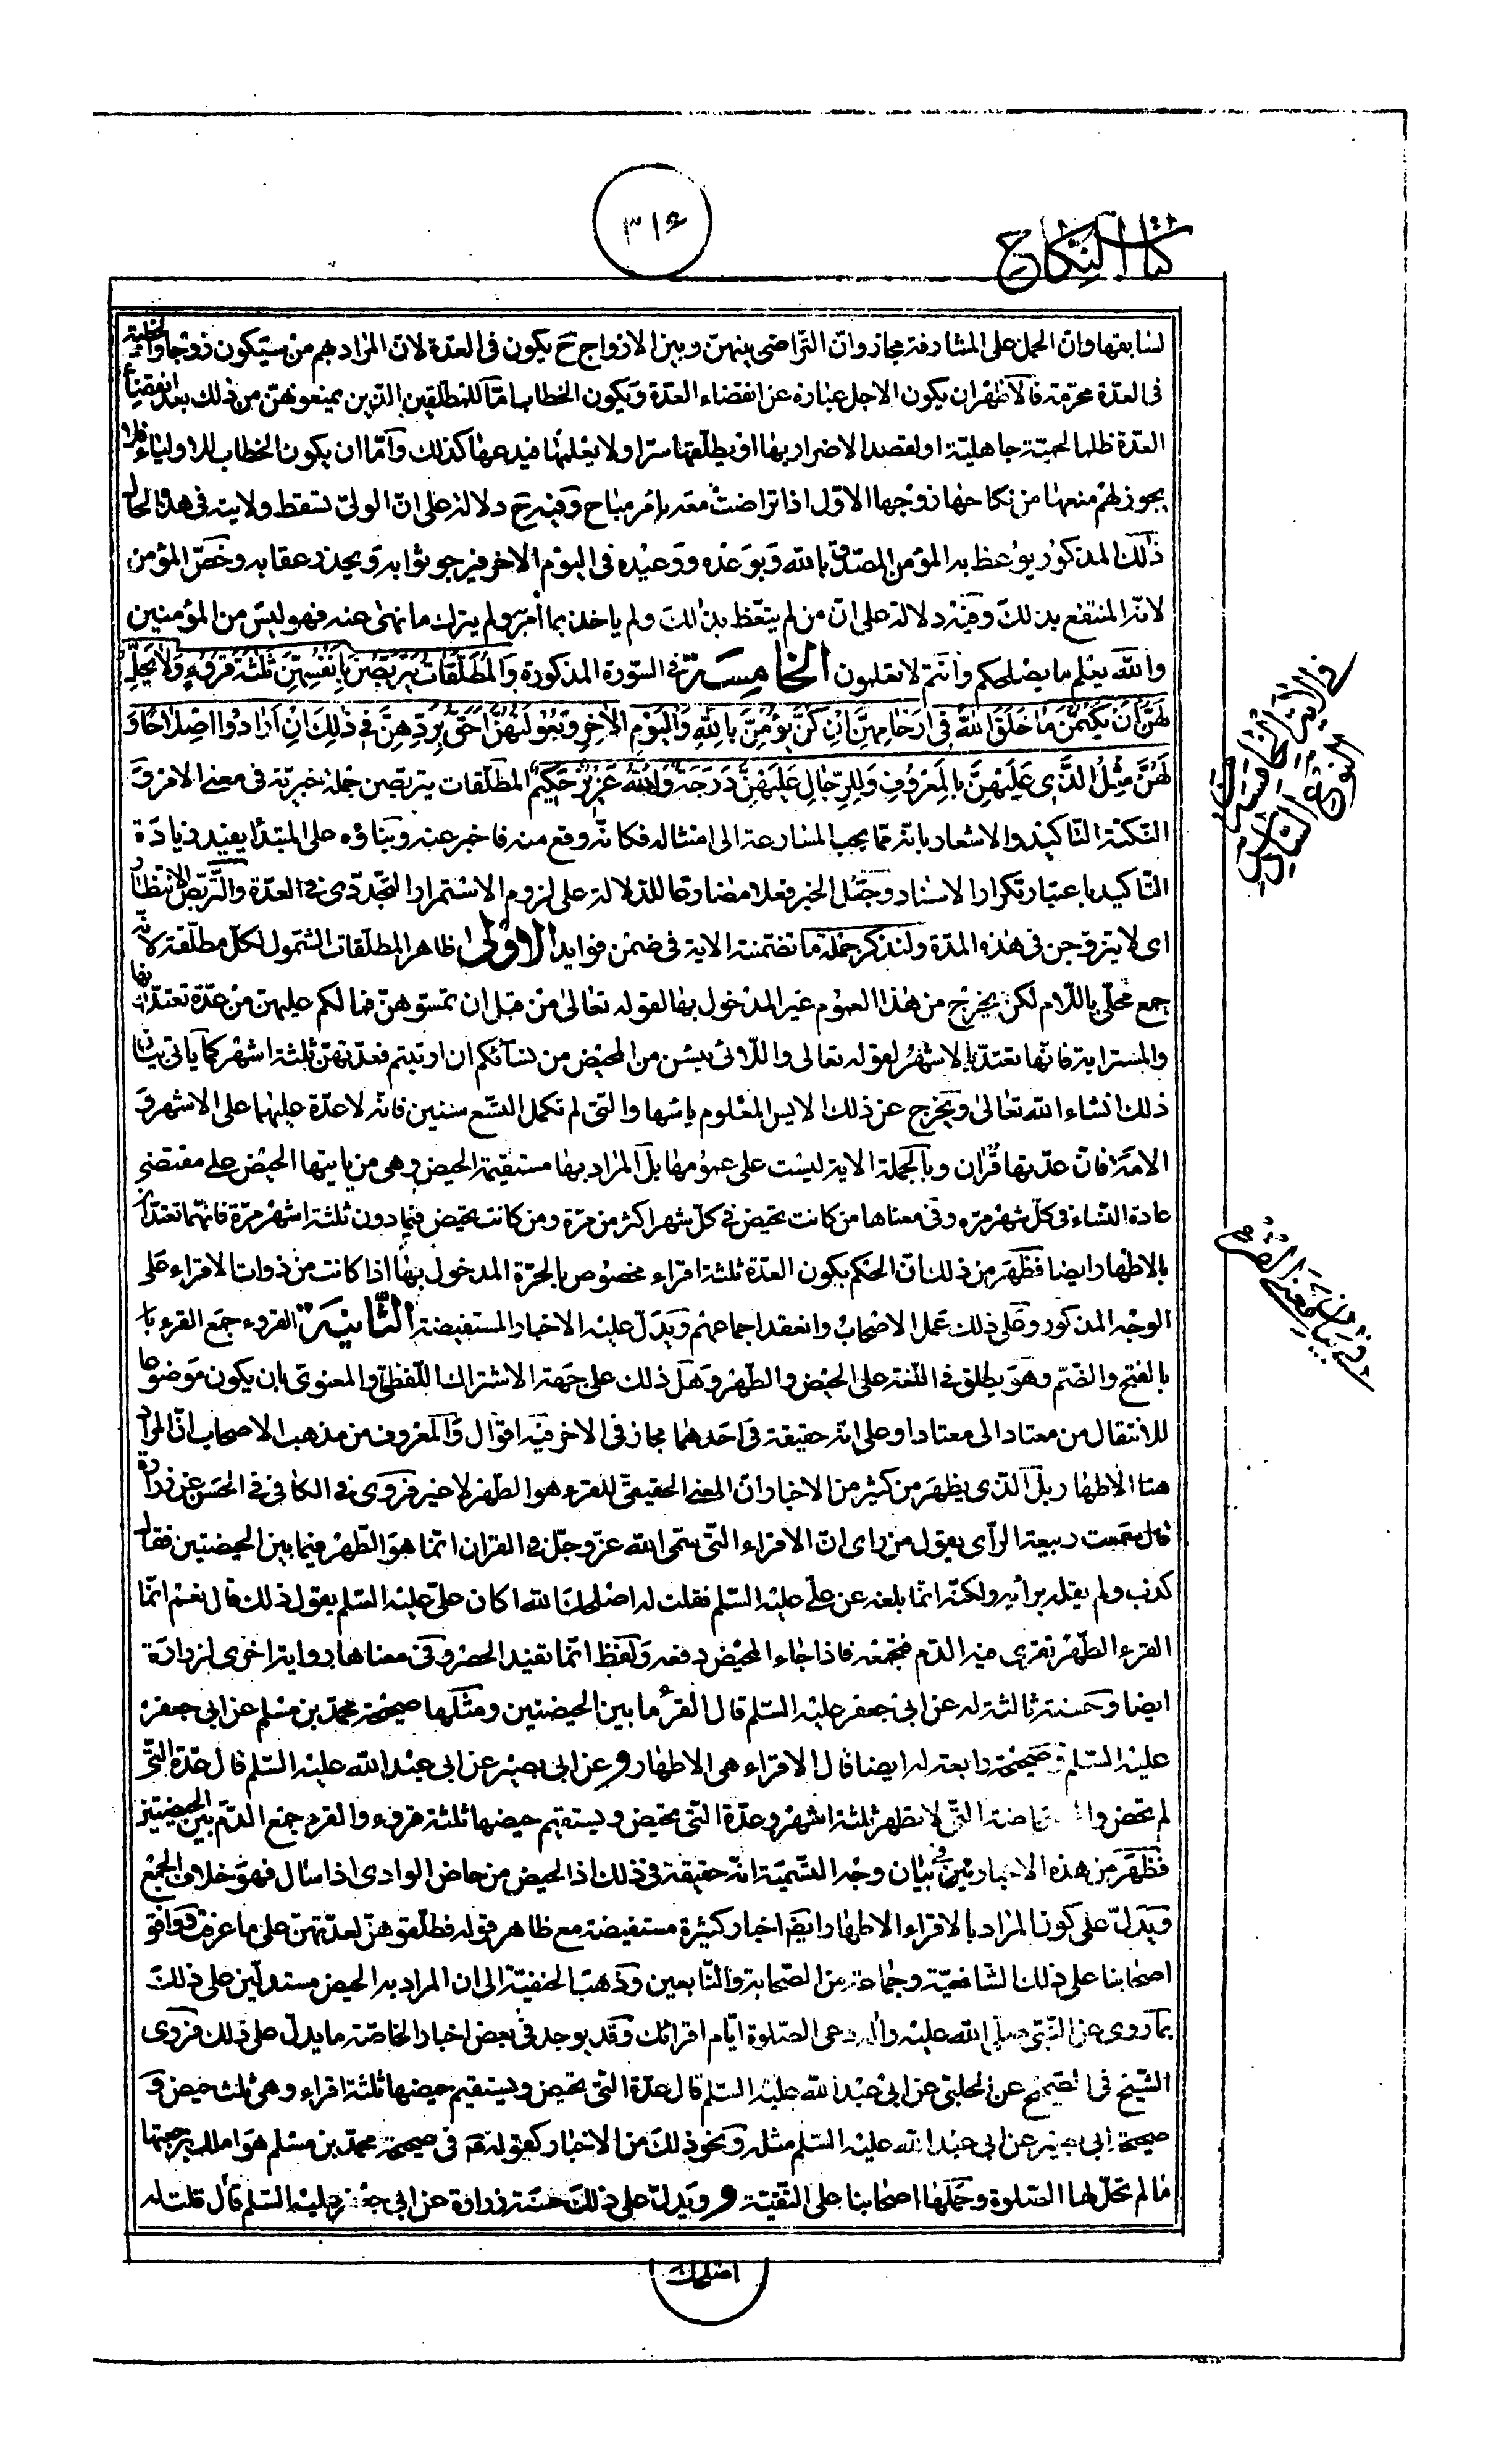 كتاب النكاح
٣١۶
لسابقها وان الحمل على المشارفة مجاز وانّ التراضى بينهنّ وبين الازواج ح يكون فى العدة لانّ المراد بهم من سيكون زوجا والخطبة
فى العدّة محرّمة فالاظهر ان يكون الاجل عبارة عن انقضاء العدّة ويكون الخطاب امّا للمطلّقين الذين يمنعونهنّ من ذلك بعد انقضاء
العدّة ظلما لحميّة جاهليّة او لقصد الاضرار بها او يطلّقها سرّا ولا يعلمها فيدعها كذلك وامّا ان يكون الخطاب للاولياء فلا
يجوز لهم منعها من نكاحها زوجها الاول اذا تراضت معه بامر مباح وفيه ح دلالة على انّ الولىّ تسقط ولايته فى هذه الحال
ذلك المذكور يوعظ به المؤمن المصدّق بالله وبوعده ووعيده فى اليوم الاخر فيرجو ثوابه ويحذر عقابه وخصّ المؤمن
لانّه المنتفع بذلك وفيه دلالة على انّ من لم يتّعظ بذلك ولم ياخذ بما امر ولم يترك ما نهى عنه فهو ليس من المؤمنين
والله يعلم ما يصلحكم وانتم لا تعلمون الخامسة فى السّورة المذكورة وَالْمُطَلَّقَاتُ يَتَرَبَّصْنَ بِأَنْفُسِهِنَّ ثَلٰثَةَ قُرُوءٍ وَلَا يَحِلُّ
لَهُنَّ أَنْ يَكْتُمْنَ مَا خَلَقَ اللهُ فِى أَرْحَامِهِنَّ إِنْ كُنَّ يُؤْمِنَّ بِاللهِ وَالْيَوْمِ الْآخِرِ وَبُعُولَتُهُنَّ أَحَقُّ بِرَدِّهِنَّ فِى ذٰلِكَ إِنْ أَرَادُوا إِصْلَاحًا وَ
لَهُنَّ مِثْلُ الَّذِى عَلَيْهِنَّ بِالْمَعْرُوفِ وَلِلرِّجَالِ عَلَيْهِنَّ دَرَجَةٌ وَاللهُ عَزِيزٌ حَكِيمٌ المطلّقات يتربّصن جملة خبريّة فى معنى الامر وَ
النكتة التّاكيد والاشعار بانّه ممّا يجب المسارعة الى امتثاله فكانّه وقع منه فاخبر عنه وبناؤه على المبتدأ يفيد زيادَة
التّاكيد باعتبار تكرار الاسناد وجعل الخبر فعلا مضارعا للدّلالة على لزوم الاستمرار التجدّدى فى العدّة والتّربّص الانتظار
اى لا يتزوّجن فى هذه المدّة ولنذكر جملة ما تضمّنته الاية فى ضمن فوايد الاولى ظاهر المطلّقات الشمول لكلّ مطلّقة لانّه
جمع محلّى باللّام لكن يخرج من هذا العموم غير المدخول بها لقوله تعالى من قبل ان تمسّوهنّ فما لكم عليهنّ من عدّة تعتدّونها
والمسترابة فانّها تعتدّ بالاشهر لقوله تعالى واللائى يئسن من المحيض من نسائكم ان ارتبتم فعدّتهنّ ثلثة اشهر كما ياتى بيان
ذلك انشاء الله تعالى ويخرج عن ذلك الايس المعلوم ياسها والتى لم تكمل التسع سنين فانّه لا عدّة عليهما على الاشهر وَ
الامة فانّ عدّتها قُرْان وبالجملة الاية ليست على عمومها بل المراد بها مستقيمة الحيض وهى من ياتيها الحيض على مقتضى
عادة النّساء فى كلّ شهر مرّة وفى معناها من كانت تحيض فى كلّ شهر اكثر من مرّة ومن كانت تحيض فيما دون ثلثة اشهر مرّة فانّهما تعتدّان
بالاطهار ايضا فظهر من ذلك انّ الحكم بكون العدّة ثلثة اقراء مخصوص بالحرّة المدخول بها اذا كانت من ذوات الاقراء على
الوجه المذكور وعلى ذلك عمل الاصحاب وانعقد اجماعهم ويدلّ عليه الاخبار المستفيضة الثّانية القروء جمع القرء با
بالفتح والضّم وهو يطلق فى اللّغة على الحيض والطّهر وهل ذلك على جهة الاشتراك اللّفظىّ والمعنوىّ بان يكون موضوعا
للانتقال من معتاد الى معتاد او على انّه حقيقة فى احدهما مجاز فى الاخر فيه اقوال والمعروف من مذهب الاصحاب انّ المراد
هنا الاطهار بل الّذى يظهر من كثير من الاخبار انّ المعنى الحقيقىّ للقرء هو الطّهر لا غير فروى فى الكافى فى الحسن عن زرارة
قال سمعت ربيعة الرّأى يقول من رايى انّ الاقراء التى سمّى الله عزّ وجلّ فى القران انّما هو الطّهر فيما بين الحيضتين فقال
كذب ولم يقله برأيه ولكنّه انّما بلغه عن علىّ عليه السّلم فقلت له اصلحك الله اكان علىّ عليه السّلم يقول ذلك قال نعم انّما
القرء الطّهر تقرى فيه الدّم فتجمعه فاذا جاء المحيض دفعه ولفظ انّما تفيد الحصر وفى معناها رواية اخرى لزرارة
ايضا وحسنة ثالثة له عن ابى جعفر عليه السّلم قال القرء ما بين الحيضتين ومثلها صحيحة محمّد بن مسلم عن ابى جعفر
عليه السّلم وصحيحة رابعة له ايضا قال الاقراء هى الاطهار و عن ابى بصير عن ابى عبد الله عليه السّلم قال عدّة الّتى
لم تحض والمستحاضة الّتى لا تطهر ثلثة اشهر وعدّة الّتى تحيض ويستقيم حيضها ثلثة قروء والقرء جمع الدّم بين الحيضتين
فظهر من هذه الاخبار بيان وجه التّسمية انّه حقيقة فى ذلك اذ الحيض من حاض الوادى اذا سال فهو خلاف الجمع
ويدلّ على كون المراد بالاقراء الاطهار ايضا اخبار كثيرة مستفيضة مع ظاهر قوله فطلّقوهنّ لعدّتهنّ على ما عرفت ووافق
اصحابنا على ذلك الشّافعيّة وجماعة من الصّحابة والتّابعين وذهب الحنفيّة الى ان المراد به الحيض مستدلّين على ذلك
بما روى عن النّبىّ صلى الله عليه واله دعى الصّلوة ايّام اقرائك وقد يوجد فى بعض اخبار الخاصّة ما يدلّ على ذلك فروى
الشيخ فى الصّحيح عن الحلبىّ عن ابى عبد الله عليه السّلم قال عدّة الّتى تحيض ويستقيم حيضها ثلثة اقراء وهى ثلث حيض وَ
صحيحة ابى بصير عن ابى عبد الله عليه السّلم مثله ونحو ذلك من الاخبار كقوله فى صحيحة محمّد بن مسلم هو املك برجعتها
ما لم تحلّ لها الصّلوة وحملها اصحابنا على التّقيّة و ويدلّ على ذلك حسنة زرارة عن ابى جعفر عليه السّلم قال قلت له
اصلحك
فى الاية الخامسة من
النوع السّادس
فى بيان معنى القرء